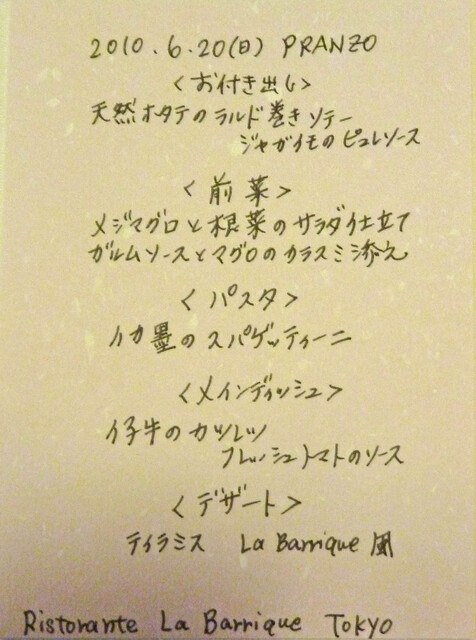 2010.6.20(日) PRANZO
<お付き出し>
天然ホタテのラルド巻きソテー
ジャガイモのピュレソース
<前菜>
メジマグロと根菜のサラダ仕立て
ガルムソースとマグロのカラスミ添え
<パスタ>
イカ墨のスパゲッティーニ
<メインディッシュ>
仔牛のカツレツ
フレッシュトマトのソース
<デザート>
ティラミス La Barrique 風
Ristorante La Barrique TOKYO